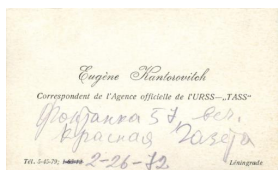 Eugène Kantorovitch
Correspondent de l'Agence officielle de l'URSS—„TASS"
Фонтанка 57, веч.
Красная Газета
Tél. 5-45-79; 2-26-72
Léningrade